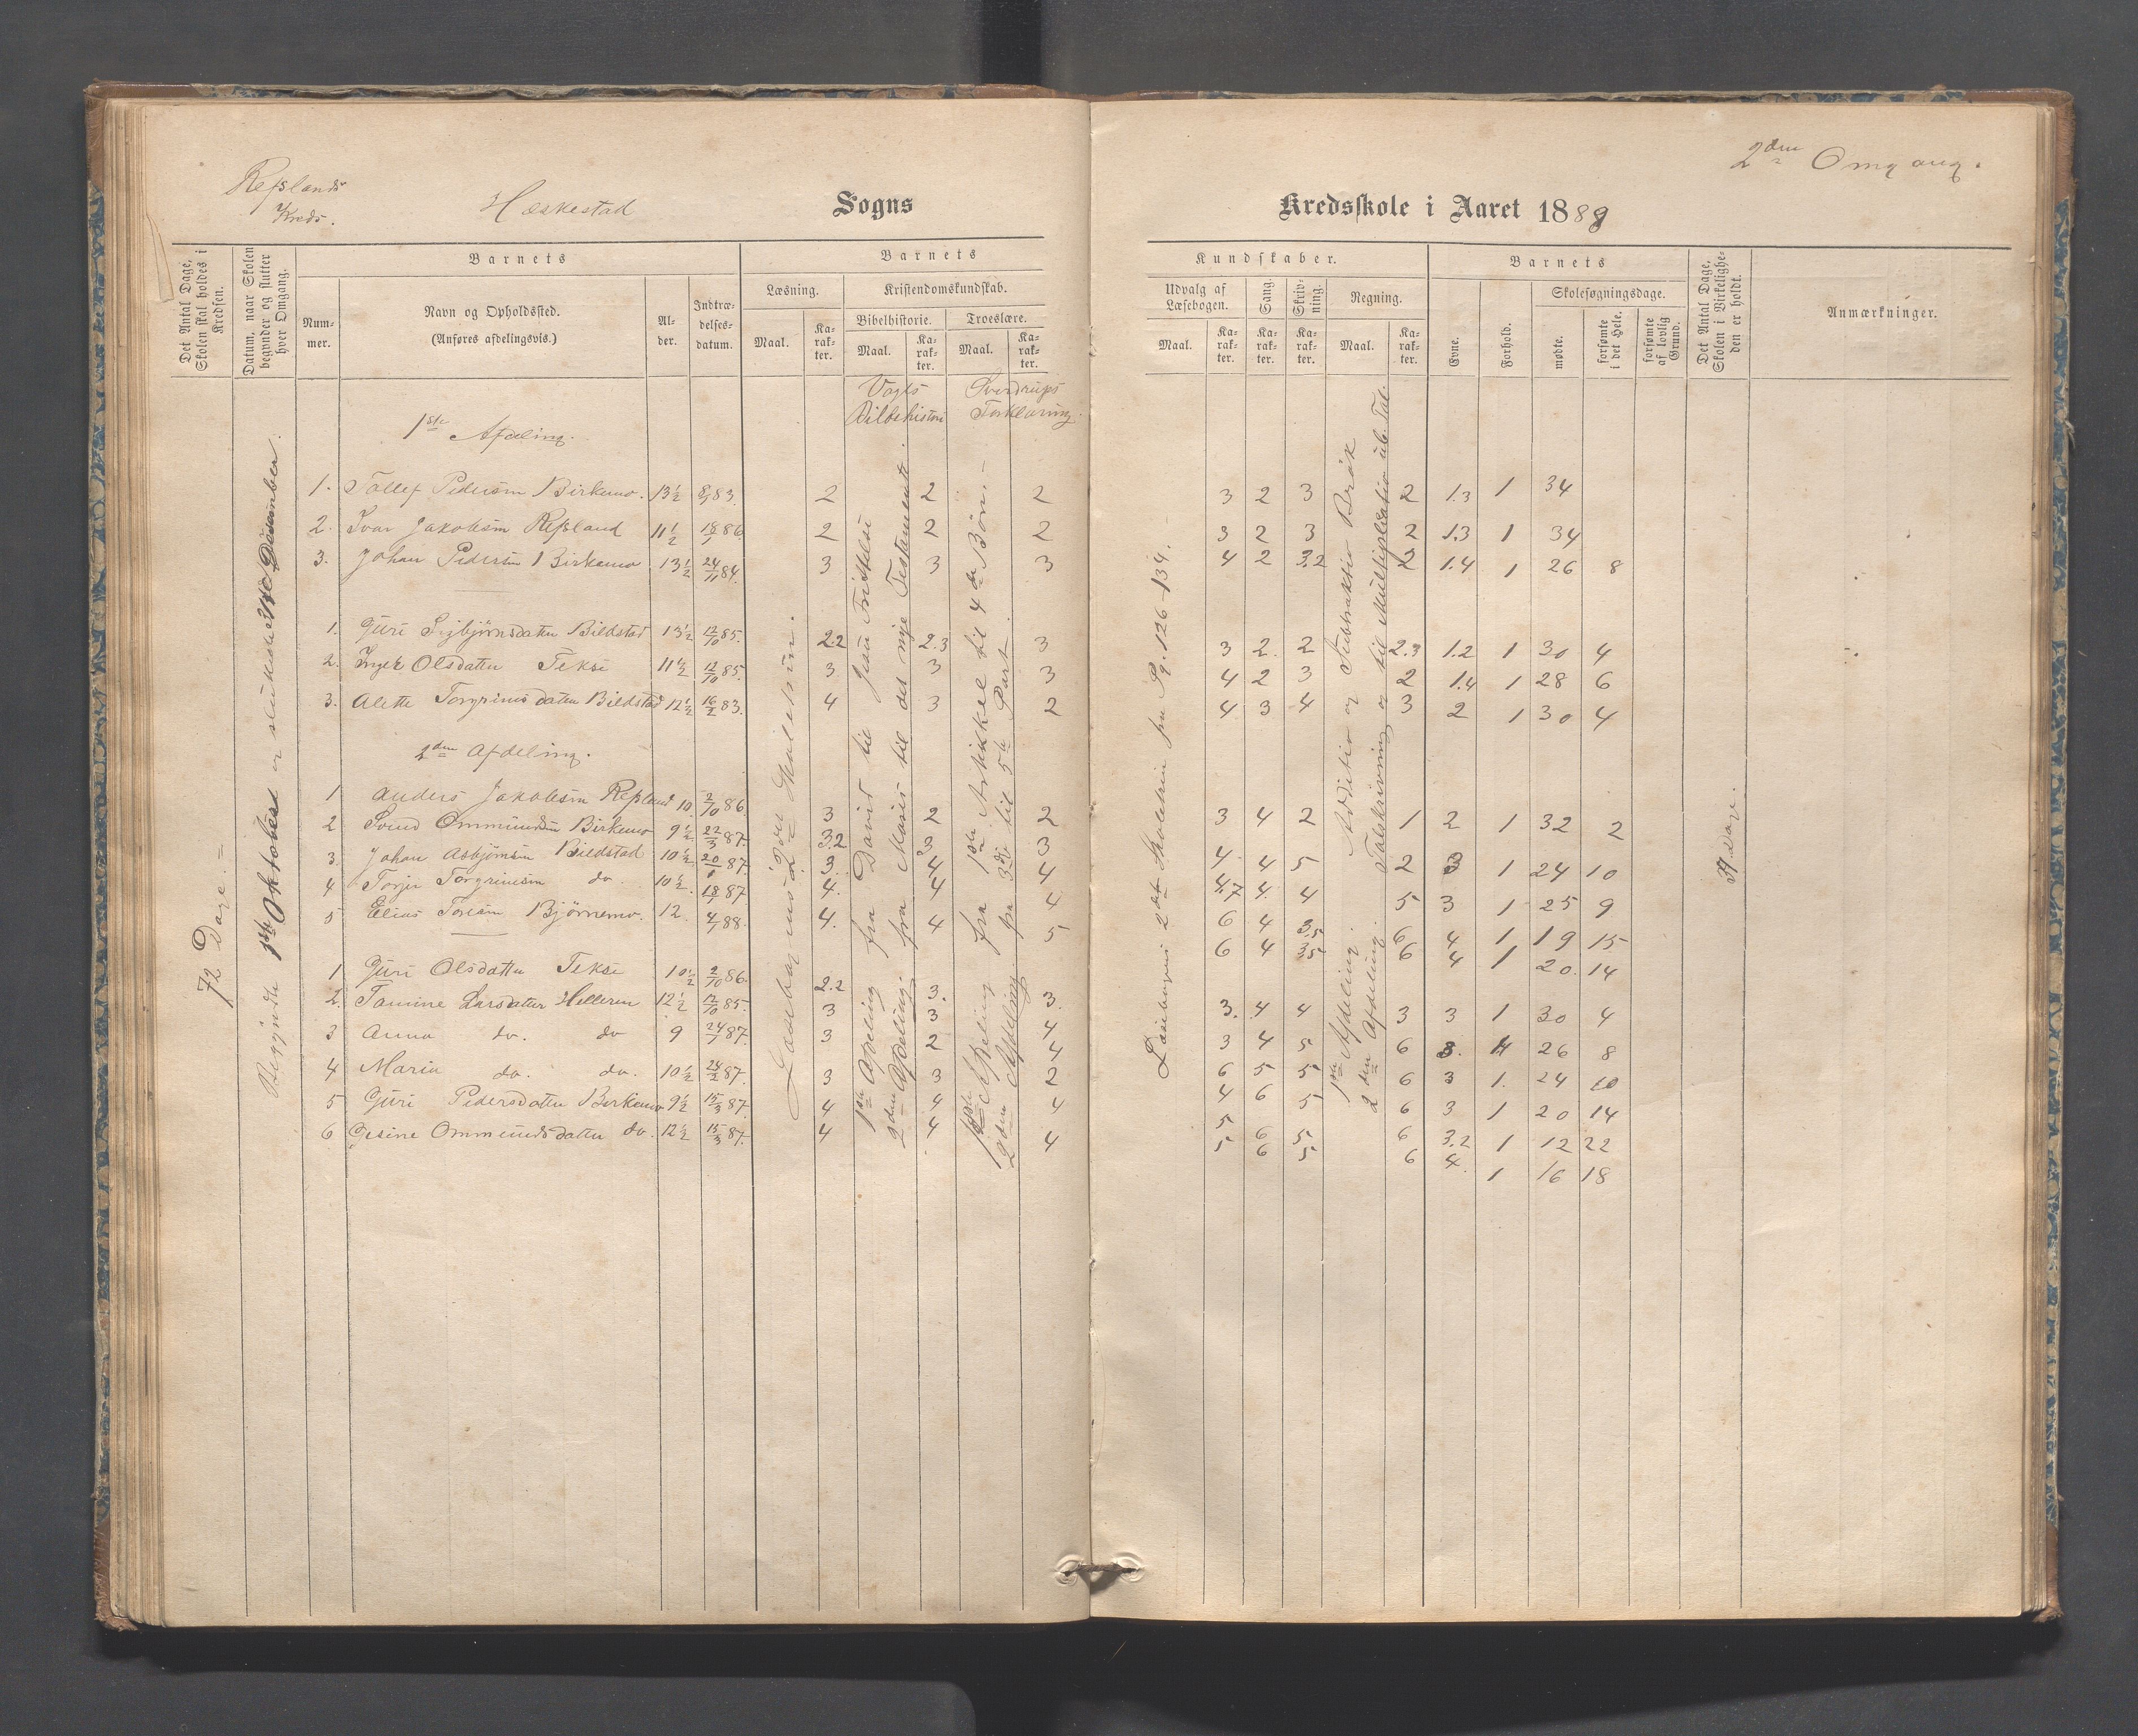 Reßlands
Kreds.
Heskestad
Sogns
Kredsskole i Aaret 1889
2den Omgang.
Det Antal Dage, Skolen skal holdes i Kredsen.
Datum, naar Skolen begynder og slutter hver Omgang.
Barnets
Nummer.
Navn og Opholdssted.
(Anføres afdelingsvis.)
Alder.
Indtrædelsesdatum.
Barnets
Læsning.
Maal.
Karakter.
Kristendomskundskab.
Bibelhistorie.
Maal.
Karakter.
Troeslære.
Maal.
Karakter.
Kundskaber.
Udvalg af Læsebogen.
Maal.
Karakter.
Sang.
Karakter.
Skrivning.
Karakter.
Regning.
Maal.
Karakter.
Barnets
Evne.
Forhold.
Skolesøgningsdage.
mødte.
forsømte i det Hele.
forsømte af lovlig Grund.
Det Antal Dage, Skolen i Virkeligheden er holdt.
Anmærkninger.
72 Dage.
Begyndt 1ste Oktober og sluttede Desember.
Vogts Bibelhistori
Sverdrups Forklaring.
Læsebog ved Skoletrin.
1ste Afdeling fra David til Jesu Fristelse
2den Afdeling fra Moses til det nye Testamente.
1ste Afdeling fra 1ste Artikkel til 4de Bøn.
2den Afdeling fra 3die til 5te Part.
Læsebogens 2det Skoletrin fra Pg. 126-134.
1ste Afdeling. Addition og Subtraktion Brøk
2den Afdeling. Talskrivning og til Multiplikation
Dage.
1ste Afdeling.
1. Tollef Pedersen Birkemo. 13½ 83. 2 2 2 3 2 3 2 1.3 1 34
2. Ivar Jakobsen Reßland 11½ 86. 2 2 2 3 2 3 2 1.3 1 34
3. Johan Pedersen Birkemo 13½ 24/11 84. 3 3 3 4 2 3.2 2 1.4 1 26 8
1. Guri Sigbjørnsdatter Bildstad 13½ 12/10 85. 2.2 2.3 3 3 2 2 2.3 1.2 1 30 4
2. Inger Olsdatter Tekse 11½ 12/10 85. 3 3 3 4 2 3 2 1.4 1 28 6
3. Alette Torgrimsdatter Bildstad 12½ 16/2 83. 4 3 2 4 3 4 3 2 1 30 4
2den Afdeling.
1 Anders Jakobsen Reßland 10. 2/10 86. 3 2 2 3 4 2 1 2 1 32 2
2 Svend Ommundsen Birkemo 9½ 22/3 87. 3.2 3 3 4 4 5 2 3 1 24 10
3. Johan Asbjørnsen Bildstad 10½ 87. 3. 4 4 4 4 5 3 1 25 9
4 Torjer Torgrimsen do. 10½ 87 4. 4 4 6 4 3.5 6 4 1 19 15
5 Elias Toresen Bjørnemo. 12. 88. 4. 4 5 6 4 3.5 6 4 1 20. 14
1 Guri Olsdatter Tekse 10½ 2/10 86. 2.2 3. 3. 3. 4 4 3 3 1 30 4
2. Tomine Larsdatter Helleren 12½ 12/10 85. 3 3 4 3 4 5 6 3. 26 8
3 Anna do. do 9 87. 3 2 4 6 5 5 6 3 1. 24 10
4 Maria do. do. 10½ 24/2 87. 3 3 2 4 6 5 6 3 1 20 14
5 Guri Pedersdatter Birkemo 9½ 15/3 87. 4 4 4 5 6 5 6 3.2 1 12 22
6 Gesine Ommundsdatter do. 12½ 15/3 87. 4 4 4 5 6 5 6 4. 1 16 18